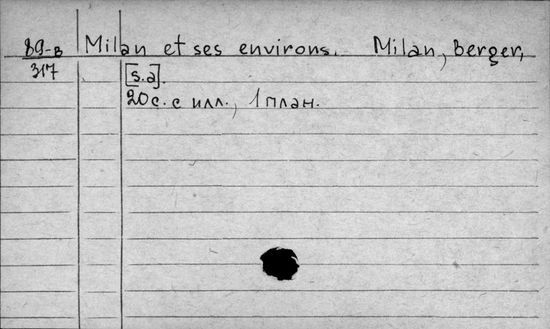 89-в Milan et ses environs. Milan, Berger,
317 [s.a].
20с. с илл., 1 план.